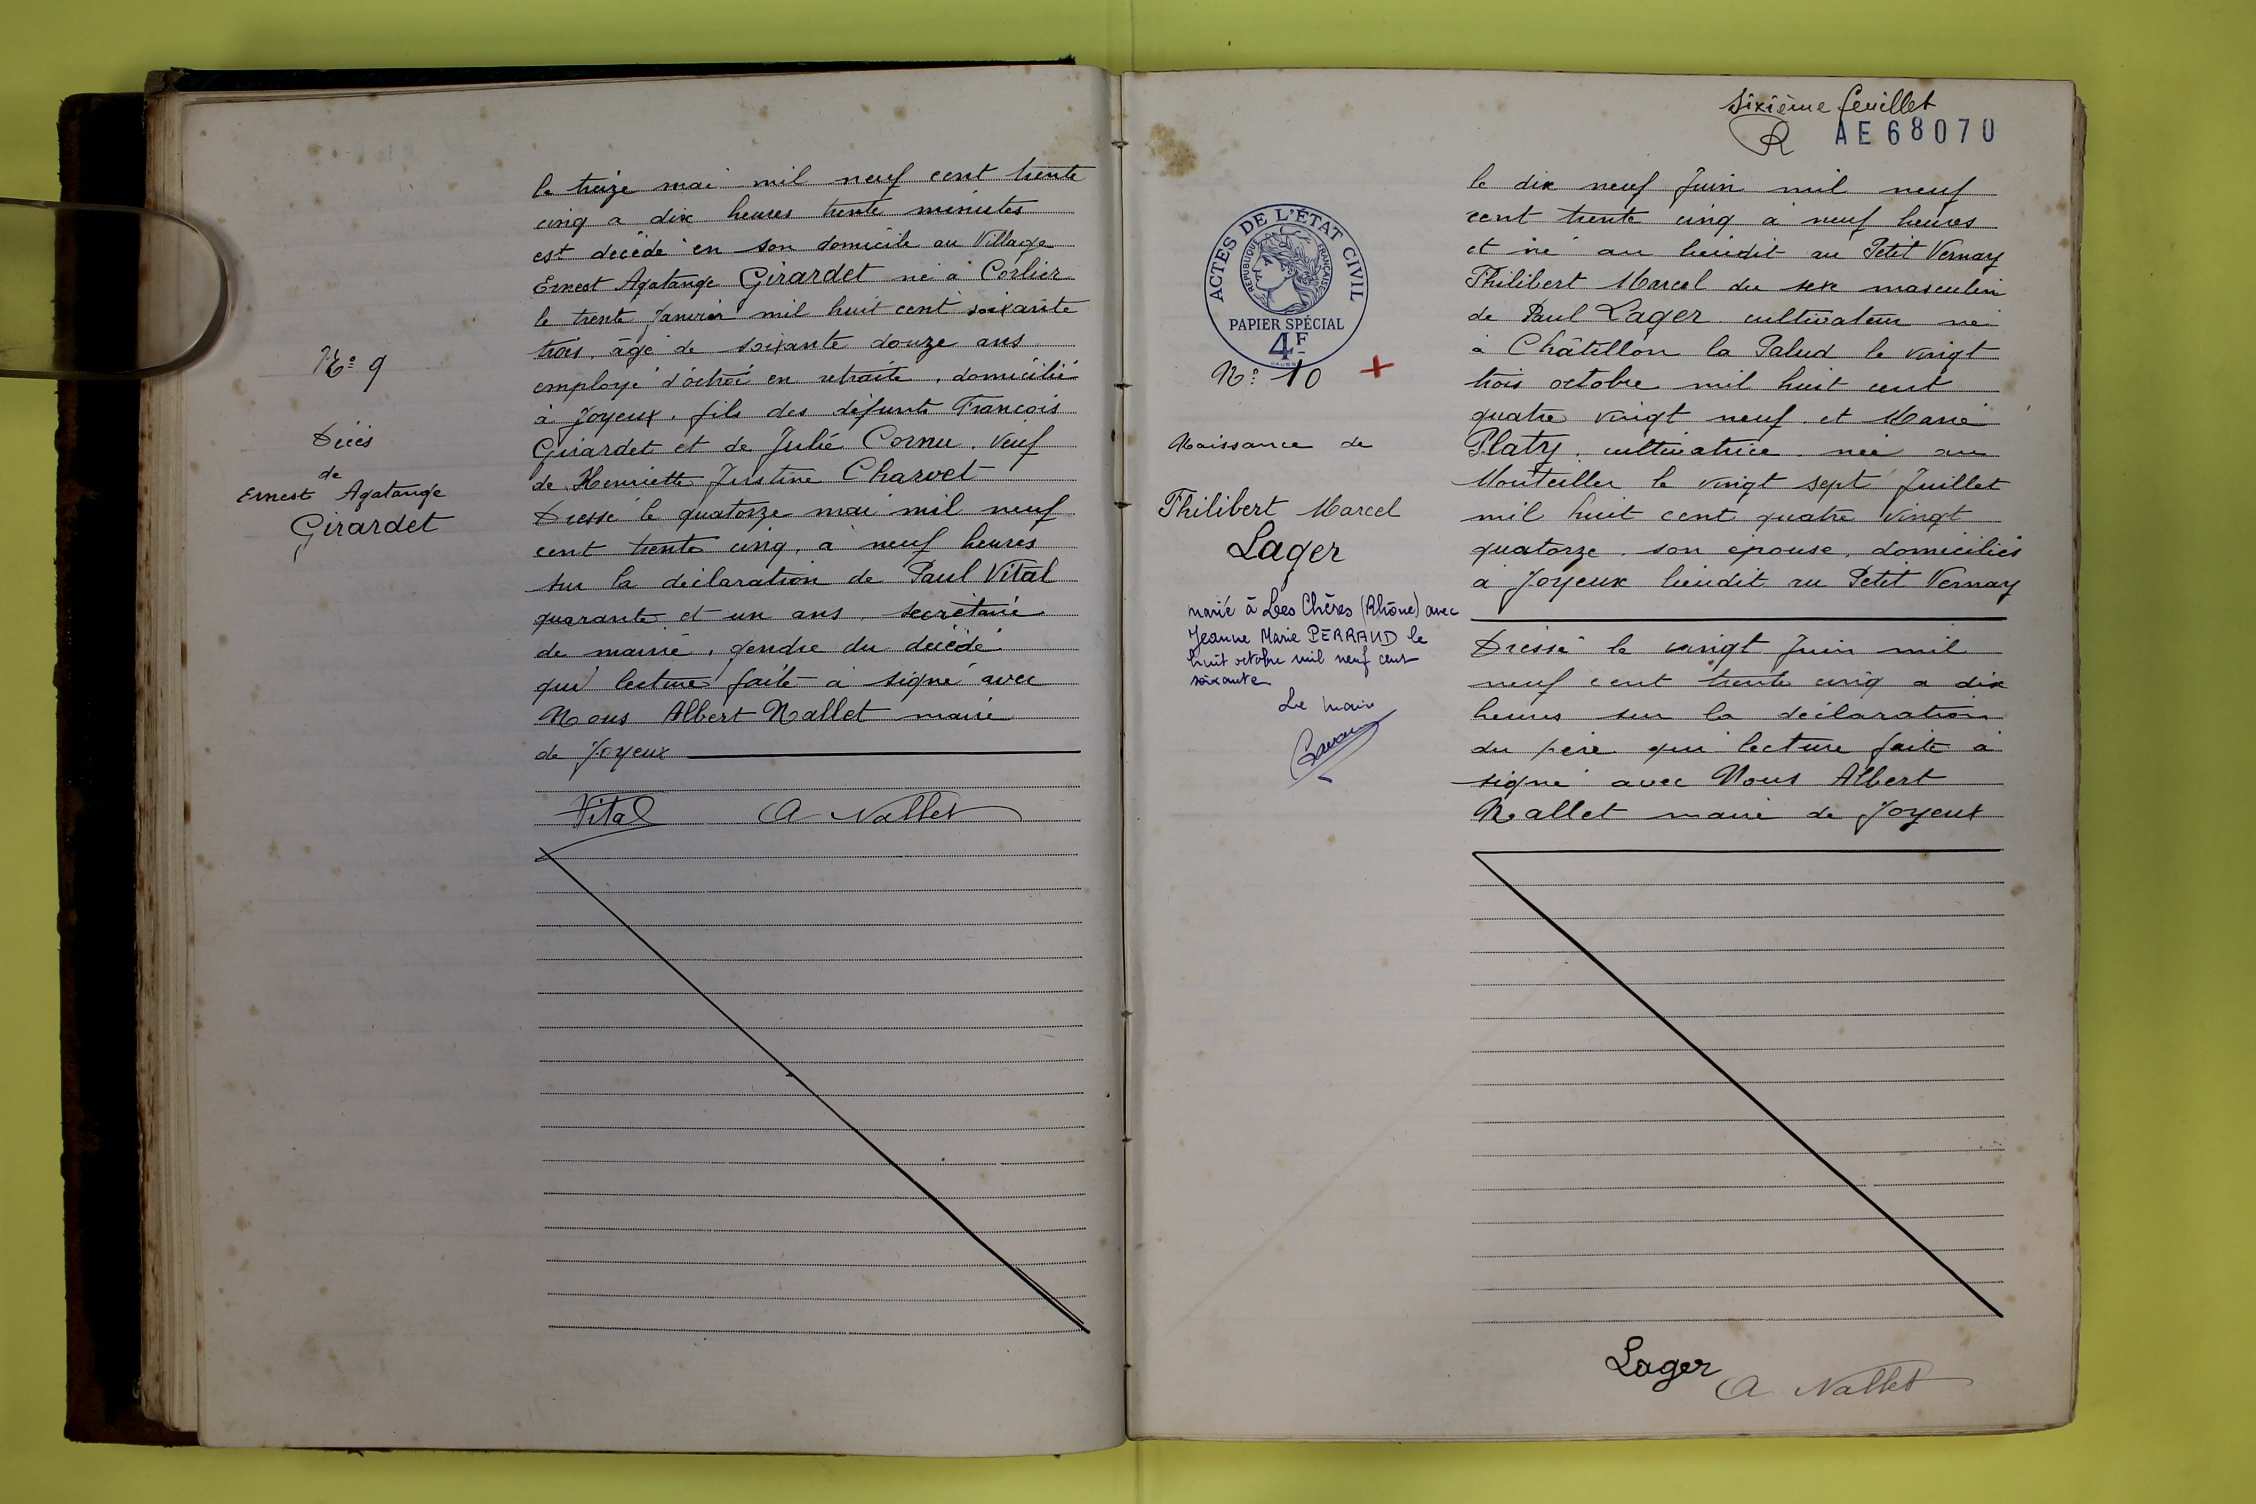 N° 9
Décès
de
Ernest Agatange
Girardet
le treize mai mil neuf cent trente
cinq à dix heures trente minutes
est décédé en son domicile au Village
Ernest Agatange Girardet né à Corlier
le trente Janvier mil huit cent soixante
trois, âgé de soixante douze ans
employé d'octroi en retraite, domicilié
à Joyeux, fils des défunts François
Girardet et de Julie Cornu. Veuf
de Henriette Justine Charvet
Dressé le quatorze mai mil neuf
cent trente cinq, à neuf heures
sur la déclaration de Paul Vital
quarante et un ans, secrétaire
de mairie, gendre du décédé
qui lecture faite a signé avec
Nous Albert Nallet maire
de Joyeux
Vital A Nallet
Sixième feuillet
R AE68070
ACTES DE L'ÉTAT CIVIL
RÉPUBLIQUE FRANÇAISE
PAPIER SPÉCIAL
4F
N° 10 +
Naissance de
Philibert Marcel
Lager
marié à Les Chères (Rhône) avec
Jeanne Marie PERRAUD le
huit octobre mil neuf cent
soixante
Le Maire
le dix neuf Juin mil neuf
cent trente cinq à neuf heures
et né au lieudit au Petit Vernay
Philibert Marcel du sexe masculin
de Paul Lager cultivateur né
à Châtillon la Palud le vingt
trois octobre mil huit cent
quatre vingt neuf et Marie
Platy, cultivatrice, née au
Montellier le vingt sept Juillet
mil huit cent quatre vingt
quatorze, son épouse, domiciliés
à Joyeux lieudit au Petit Vernay
Dressé le vingt Juin mil
neuf cent trente cinq à dix
heures sur la déclaration
du père qui lecture faite a
signé avec Nous Albert
Nallet maire de Joyeux
Lager A Nallet